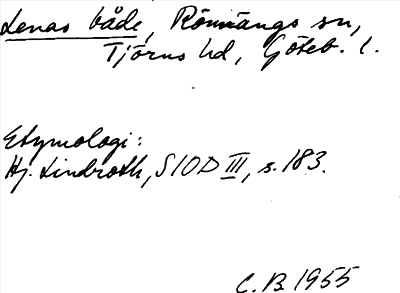 Lenas både, Rönnängs sn,
Tjörns hd, Göteb. l.
Etymologi:
Hj. Lindroth, SIOD III, s. 183.
C.B. 1955